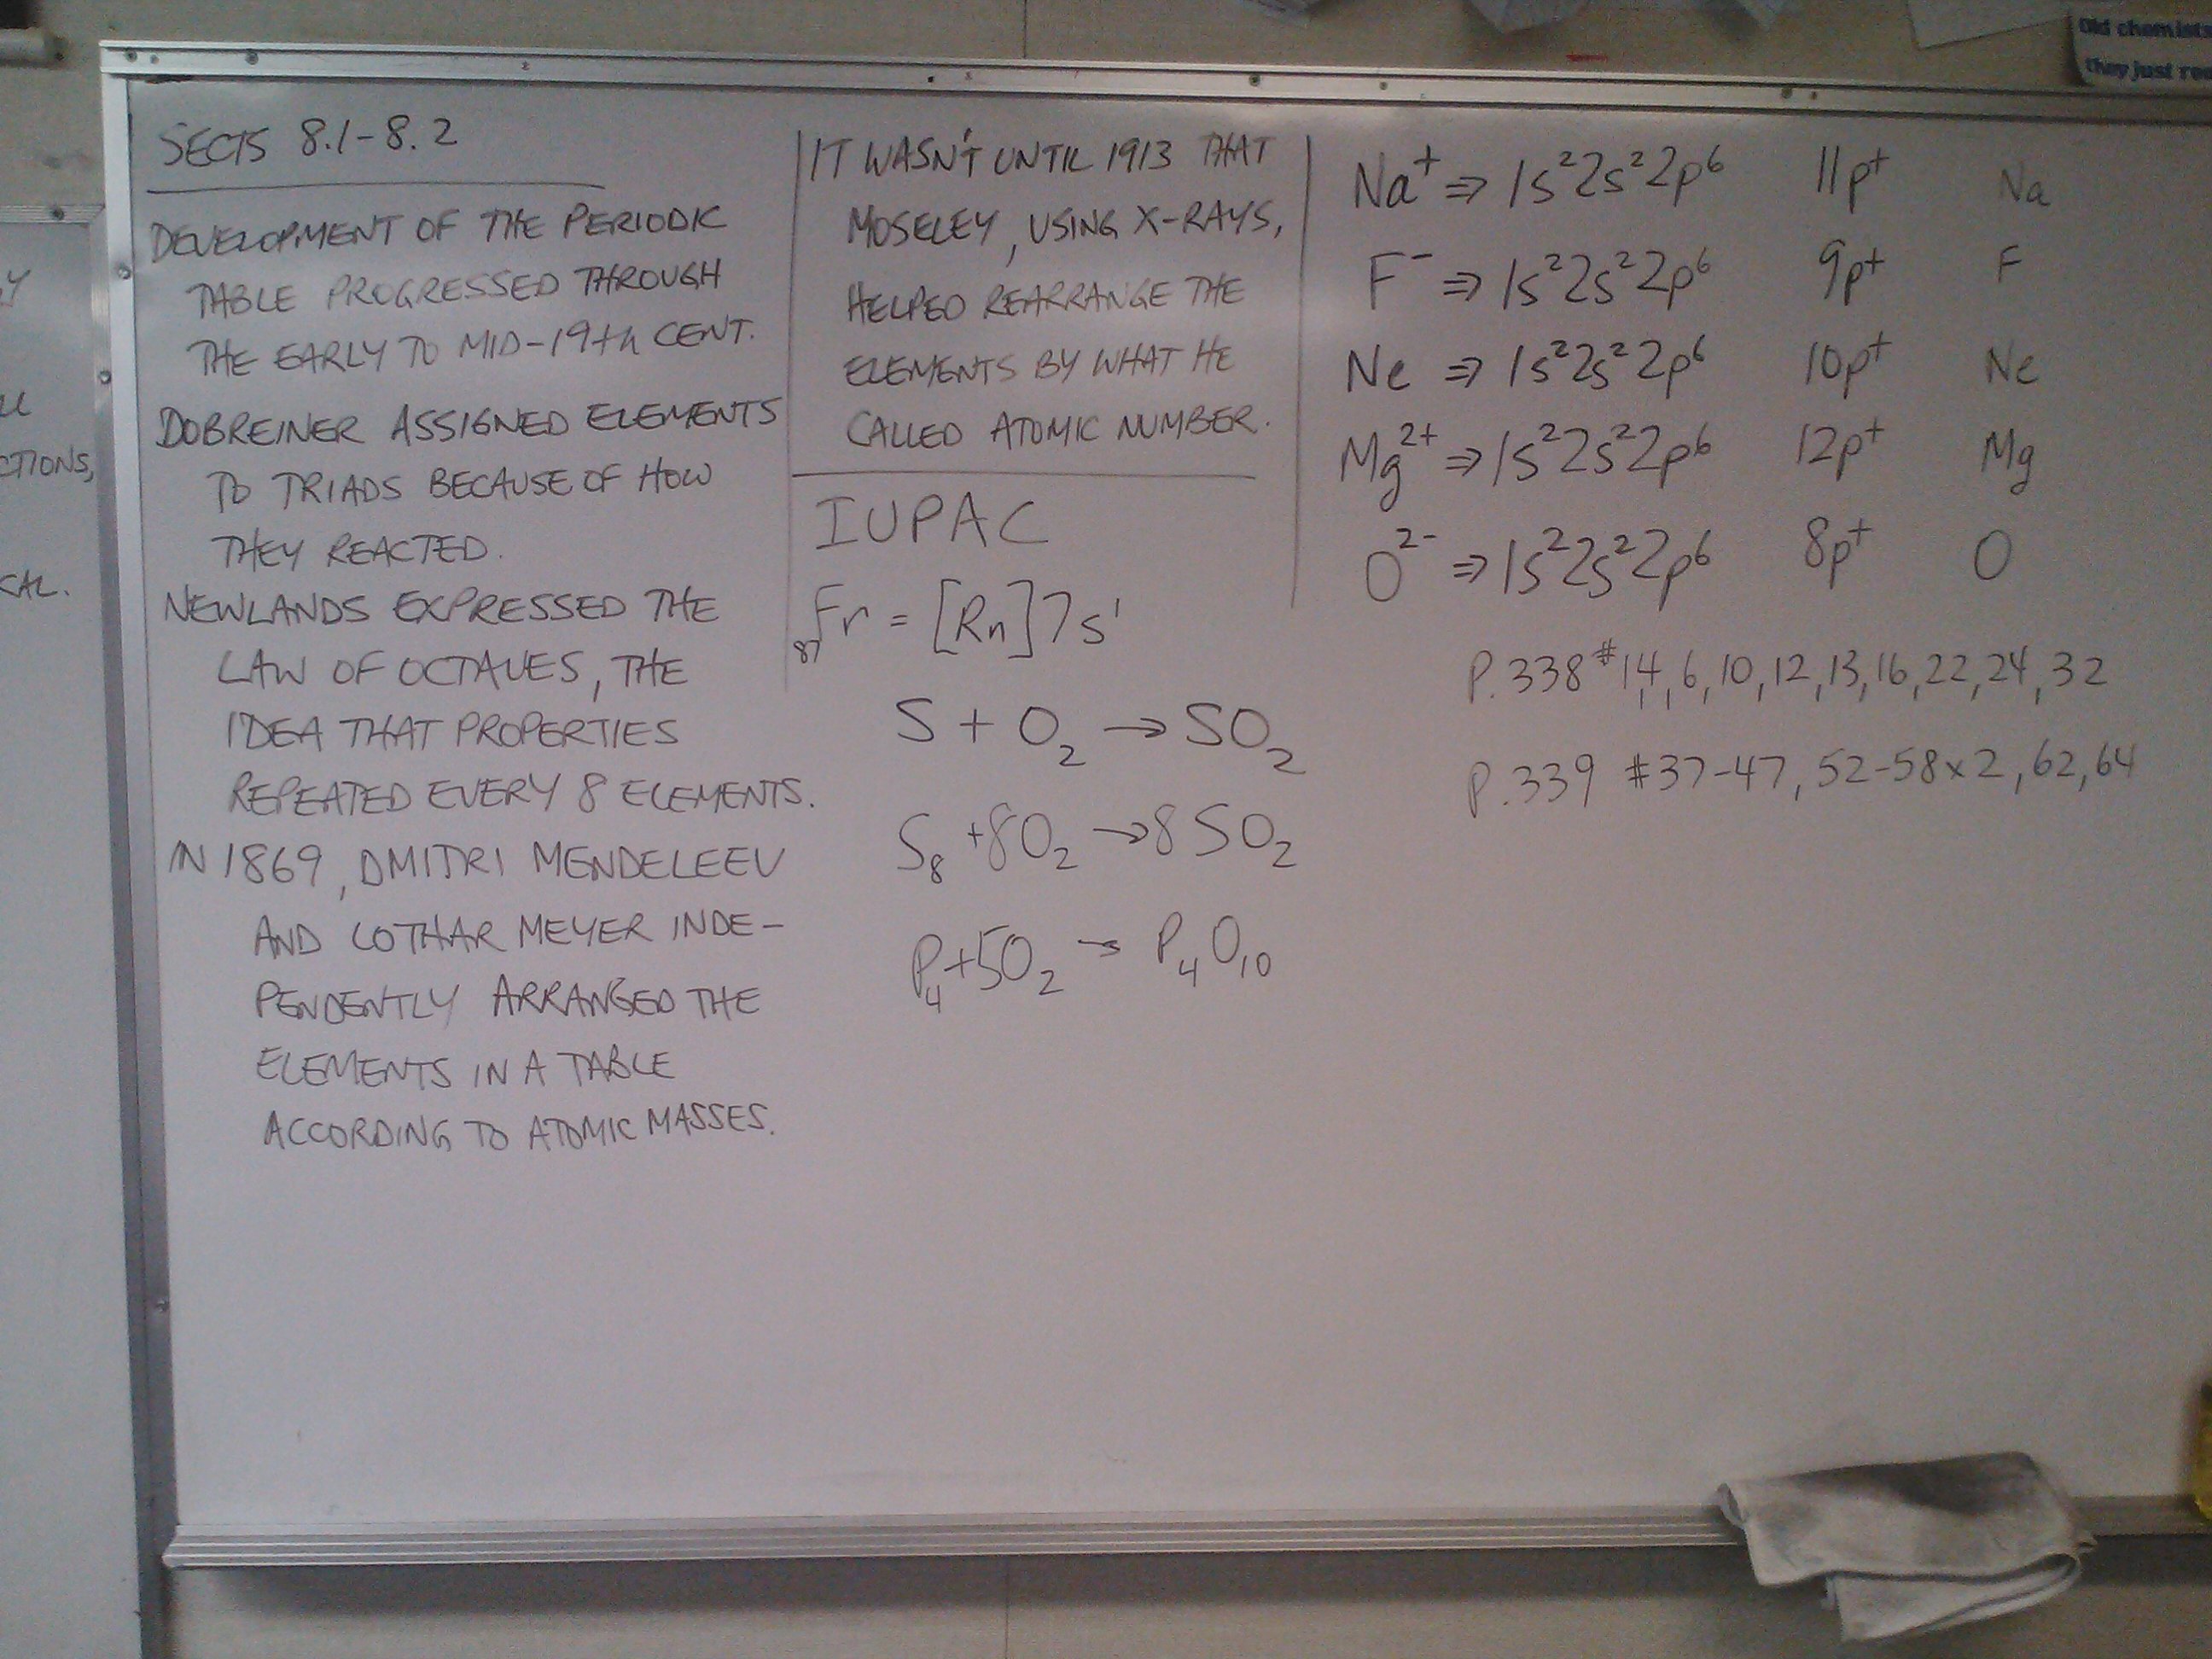 SECTS 8.1-8.2
DEVELOPMENT OF THE PERIODIC
TABLE PROGRESSED THROUGH
THE EARLY TO MID-19th CENT.
DOBREINER ASSIGNED ELEMENTS
TO TRIADS BECAUSE OF HOW
THEY REACTED.
NEWLANDS EXPRESSED THE
LAW OF OCTAVES, THE
IDEA THAT PROPERTIES
REPEATED EVERY 8 ELEMENTS.
IN 1869, DMITRI MENDELEEV
AND LOTHAR MEYER INDE-
PENDENTLY ARRANGED THE
ELEMENTS IN A TABLE
ACCORDING TO ATOMIC MASSES.
IT WASN'T UNTIL 1913 THAT
MOSELEY, USING X-RAYS,
HELPED REARRANGE THE
ELEMENTS BY WHAT HE
CALLED ATOMIC NUMBER.
IUPAC
₈₇Fr = [Rn]7s¹
S + O₂ → SO₂
S₈ + 8O₂ → 8SO₂
P₄ + 5O₂ → P₄O₁₀
Na⁺ ⇒ 1s²2s²2p⁶ 11p⁺ Na
F⁻ ⇒ 1s²2s²2p⁶ 9p⁺ F
Ne ⇒ 1s²2s²2p⁶ 10p⁺ Ne
Mg²⁺ ⇒ 1s²2s²2p⁶ 12p⁺ Mg
O²⁻ ⇒ 1s²2s²2p⁶ 8p⁺ O
P.338 # 1,4,6,10,12,13,16,22,24,32
P.339 #37-47, 52-58x2, 62, 64
Old chemists
they just
CTIONS,
CAL.